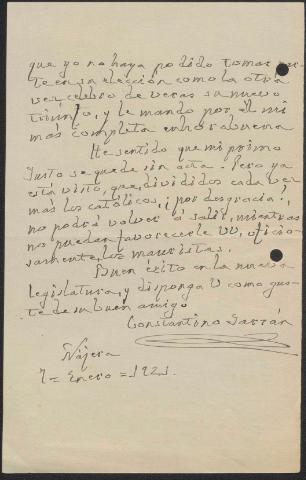 que yo no haya podido tomar par-
te en su elección como la otra
vez celebro de veras su nuevo
triunfo, y le mando por él mi
más completa enhorabuena
He sentido que mi primo
Justo se quede sin acta. Pero ya
está visto, que, divididos cada vez
más los católicos, ¡por desgracia!,
no podrá volver a salir, mientras
no puedan favorecerle VV, oficio-
samente, los mauristas.
Buen éxito en la nueva
legislatura, y disponga V como gus-
te de su buen amigo
Constantino Garrán
Nájera
7 = Enero = 1921.